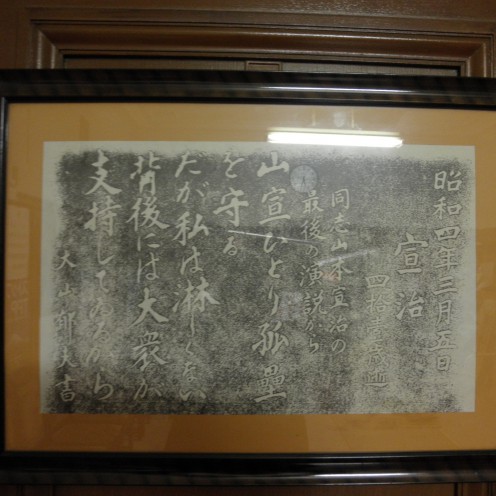 昭和四年三月五日
宣治
四拾壱歳逝
同志山本宣治の
最後の演説から
山宣ひとり孤塁
を守る
だが私は淋しくない
背後には大衆が
支持してゐるから
大山郁夫書